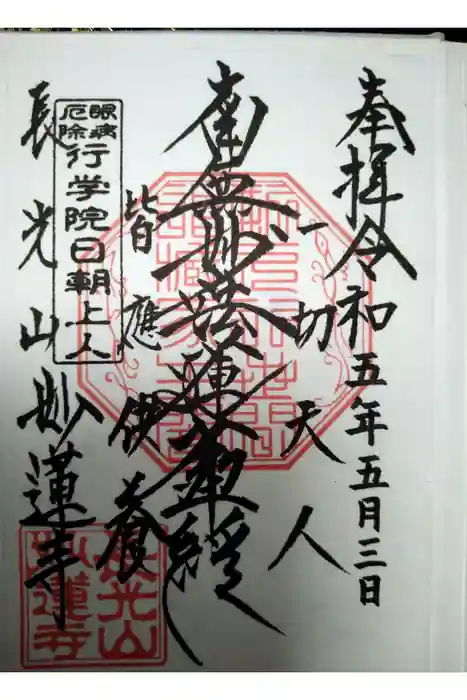 奉拝令和五年五月三日
一切天人
南無妙法蓮華経
皆應供養
眼病
厄除
行学院日朝上人
長光山妙蓮寺
長光山
妙蓮寺